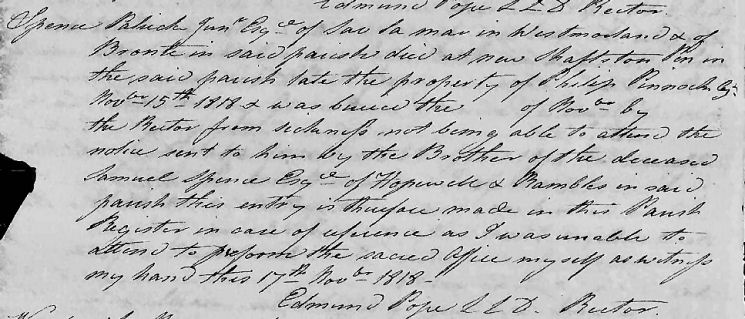 Edmund Pope LLD Rector.
Spence Patrick Junr Esqre of Sav la mar in Westmorland & of
Bronte in said parish died at new Shaftston Pen in
the said parish late the property of Philip Pinnock Esqr
Novber 15th 1818 & was buried the of Novber by
the Rector from sickness not being able to attend the
notice sent to him by the Brother of the deceased
Samuel Spence Esqre of Hopewell & Rambles in said
parish this entry is therefore made in this Parish
Register in case of reference as I was unable to
attend to preform the sacred office myself as witness
my hand this 17th Novber 1818-
Edmund Pope LLD. Rector.